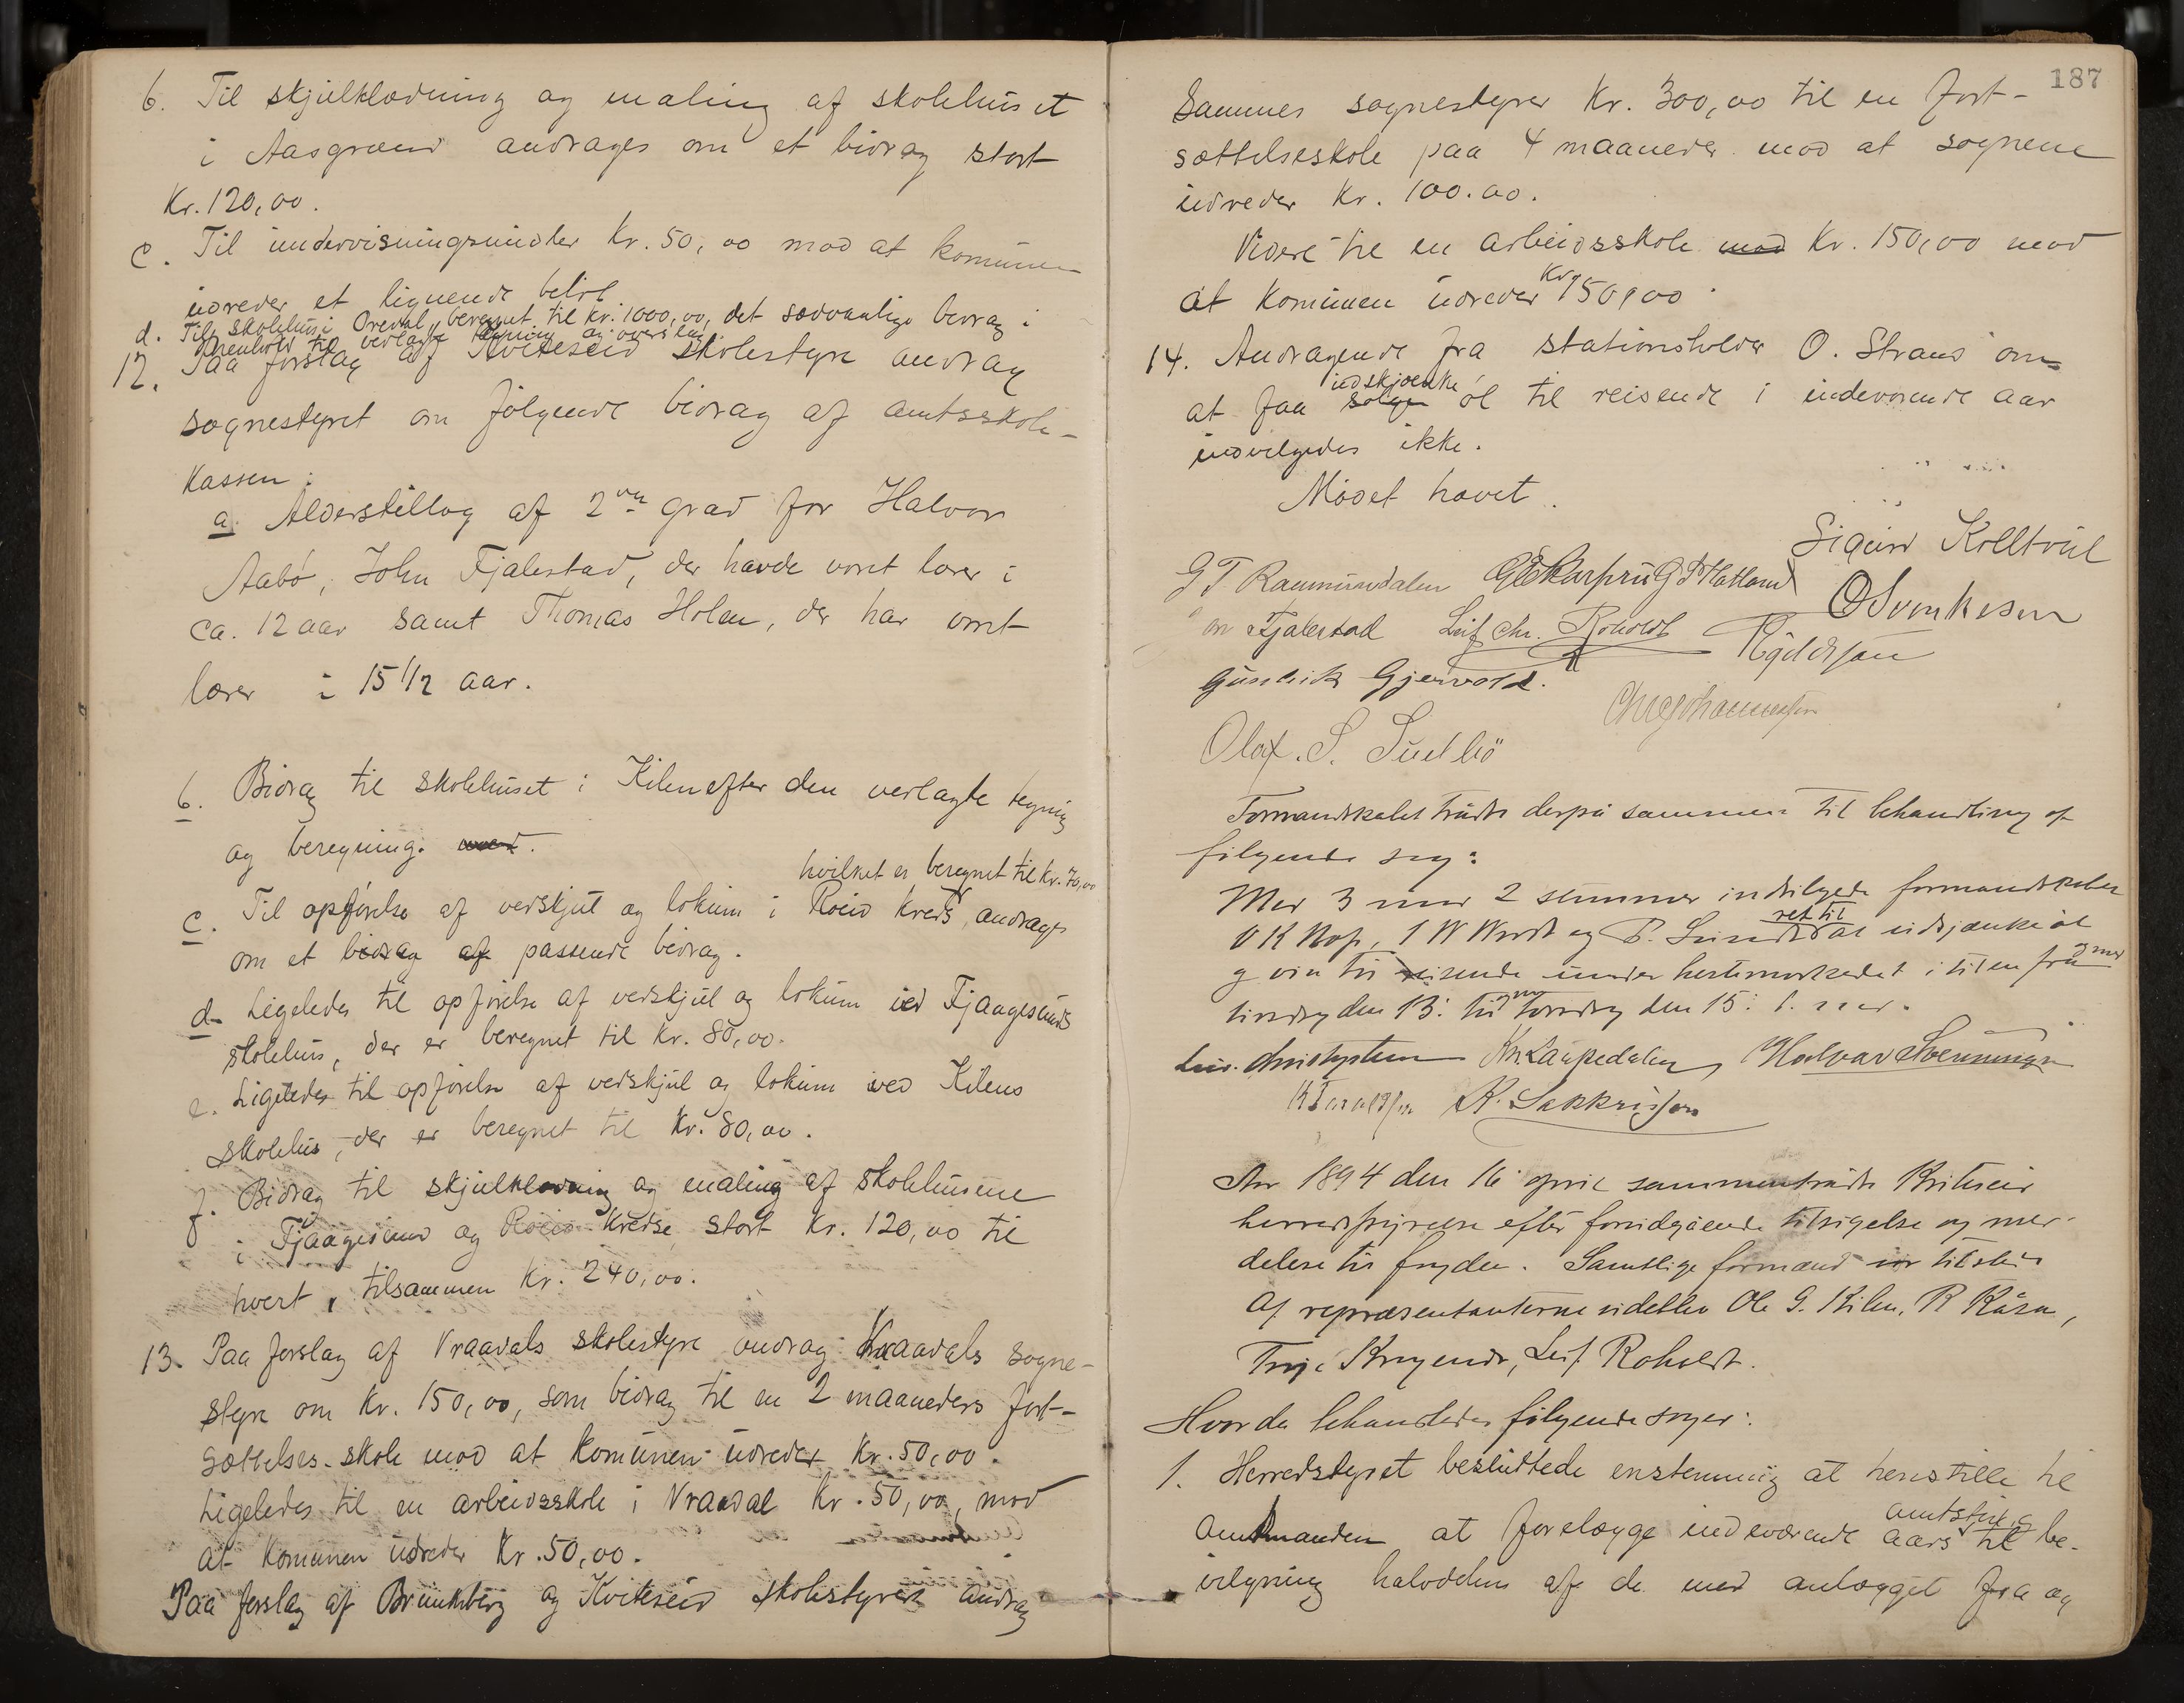 6. Til skjulklædning og maling af skolehuset
i Aasgrænd andrages om et bidrag stort
Kr. 120,00.
c. Til undervisningsmidler Kr. 50,00 mod at komunen
udreder et lignende beløb
d. Til skolehus i Oredal, beregnet til kr. 1000,00, det sædvanlige bidrag i
henhold til verlagte tegning og overslag.
12. Paa forslag af Kviteseid skolestyre androg
sognestyret om følgende bidrag af amtsskole-
kassen:
a. Alderstillæg af 2den grad for Halvor
Aabø, John Fjalestad, der havde været lærer i
ca. 12 aar samt Thomas Holen, der har været
lærer i 15 1/2 aar.
b. Bidrag til skolehuset i Kilen efter den verlagte tegning
og beregning. med.
hvilket er beregnet til kr. 70,00
c. Til opførelse af vedskjul og lokum i Roeid kreds, andrages
om et bidrag af passende bidrag.
d. Ligeledes til opførelse af vedskjul og lokum ved Fjaagesunds
skolehus, der er beregnet til Kr. 80,00.
e. Ligeledes til opførelse af vedskjul og lokum ved Kilens
skolehus, der er beregnet til Kr. 80,00.
f. Bidrag til skjulklædning og maling af skolehusene
i Fjaagesund og Roeid kredse, stort Kr. 120,00 til
hvert, tilsammen Kr. 240,00.
13. Paa forslag af Vraadals skolestyre androg Vraadals sogne-
styre om Kr. 150,00, som bidrag til en 2 maaneders fort-
sættelses-skole mod at komunen udreder Kr. 50,00.
Ligeledes til en arbeidsskole i Vraadal Kr. 50,00, mod
at komunen udreder Kr. 50,00.
Paa forslag af Brunkeberg og Kviteseid skolestyrer androg
187
sammes sognestyrer Kr. 300,00 til en fort-
sættelseskole paa 4 maaneder mod at sognene
udreder Kr. 100.00.
Videre til en arbeidsskole mod Kr. 150,00 mod
Kr
at komunen udreder 150,00.
14. Andragende fra stationsholder O. Straud om
udskjænke
at faa sælge øl til reisende i indeværende aar
indvilgedes ikke.
Mødet hævet.
Sigurd Kolltveit
G T Raumundalen
Fjalestad Leif Chr. Roholdt
Gunleik Gjervold.
Olaf. S. Sudbö
Formandskabet traadte derpaa sammen til behandling af
følgende sag:
Med 3 mod 2 stemmer indvilgede formandskabet
ret til
og
udskjænke øl
og vin til reisende under hestemarkedet i Kilen fra og med
tirsdag den 13. til og med torsdag den 15.
Halvar Svenningsen
K. Sakkrisson
Aar 1894 den 16 april sammentraadte Kviteseid
herredsstyrelse efter forudgaaende tilsigelse og med-
delelse til fogden. Samtlige formænd var tilstede
Af repræsentanterne udeblev Ole G. Kilen, R Kåsa,
Leif Roholdt.
Hvor da behandledes følgende sager:
1. Herredstyret besluttede enstemmig at henstille til
amtsting
amtmanden at forelægge indeværende aars til be-
vilgning halvdelen af de med anlægget fra og